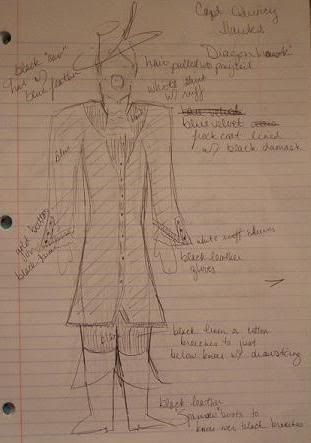 Capt. Quincy
Hawkes
"Dragonhawk"
black "cav"
hat w/
blue feather
hair pulled into ponytail
white shirt
w/ ruff
blue velvet
frock coat lined
w/ black damask
blue
gold buttons
black
white cuff shows
black leather
gloves
black
black linen or cotton
breeches to just
below knee w/ drawstring
black leather
boots to
knee over black breeches